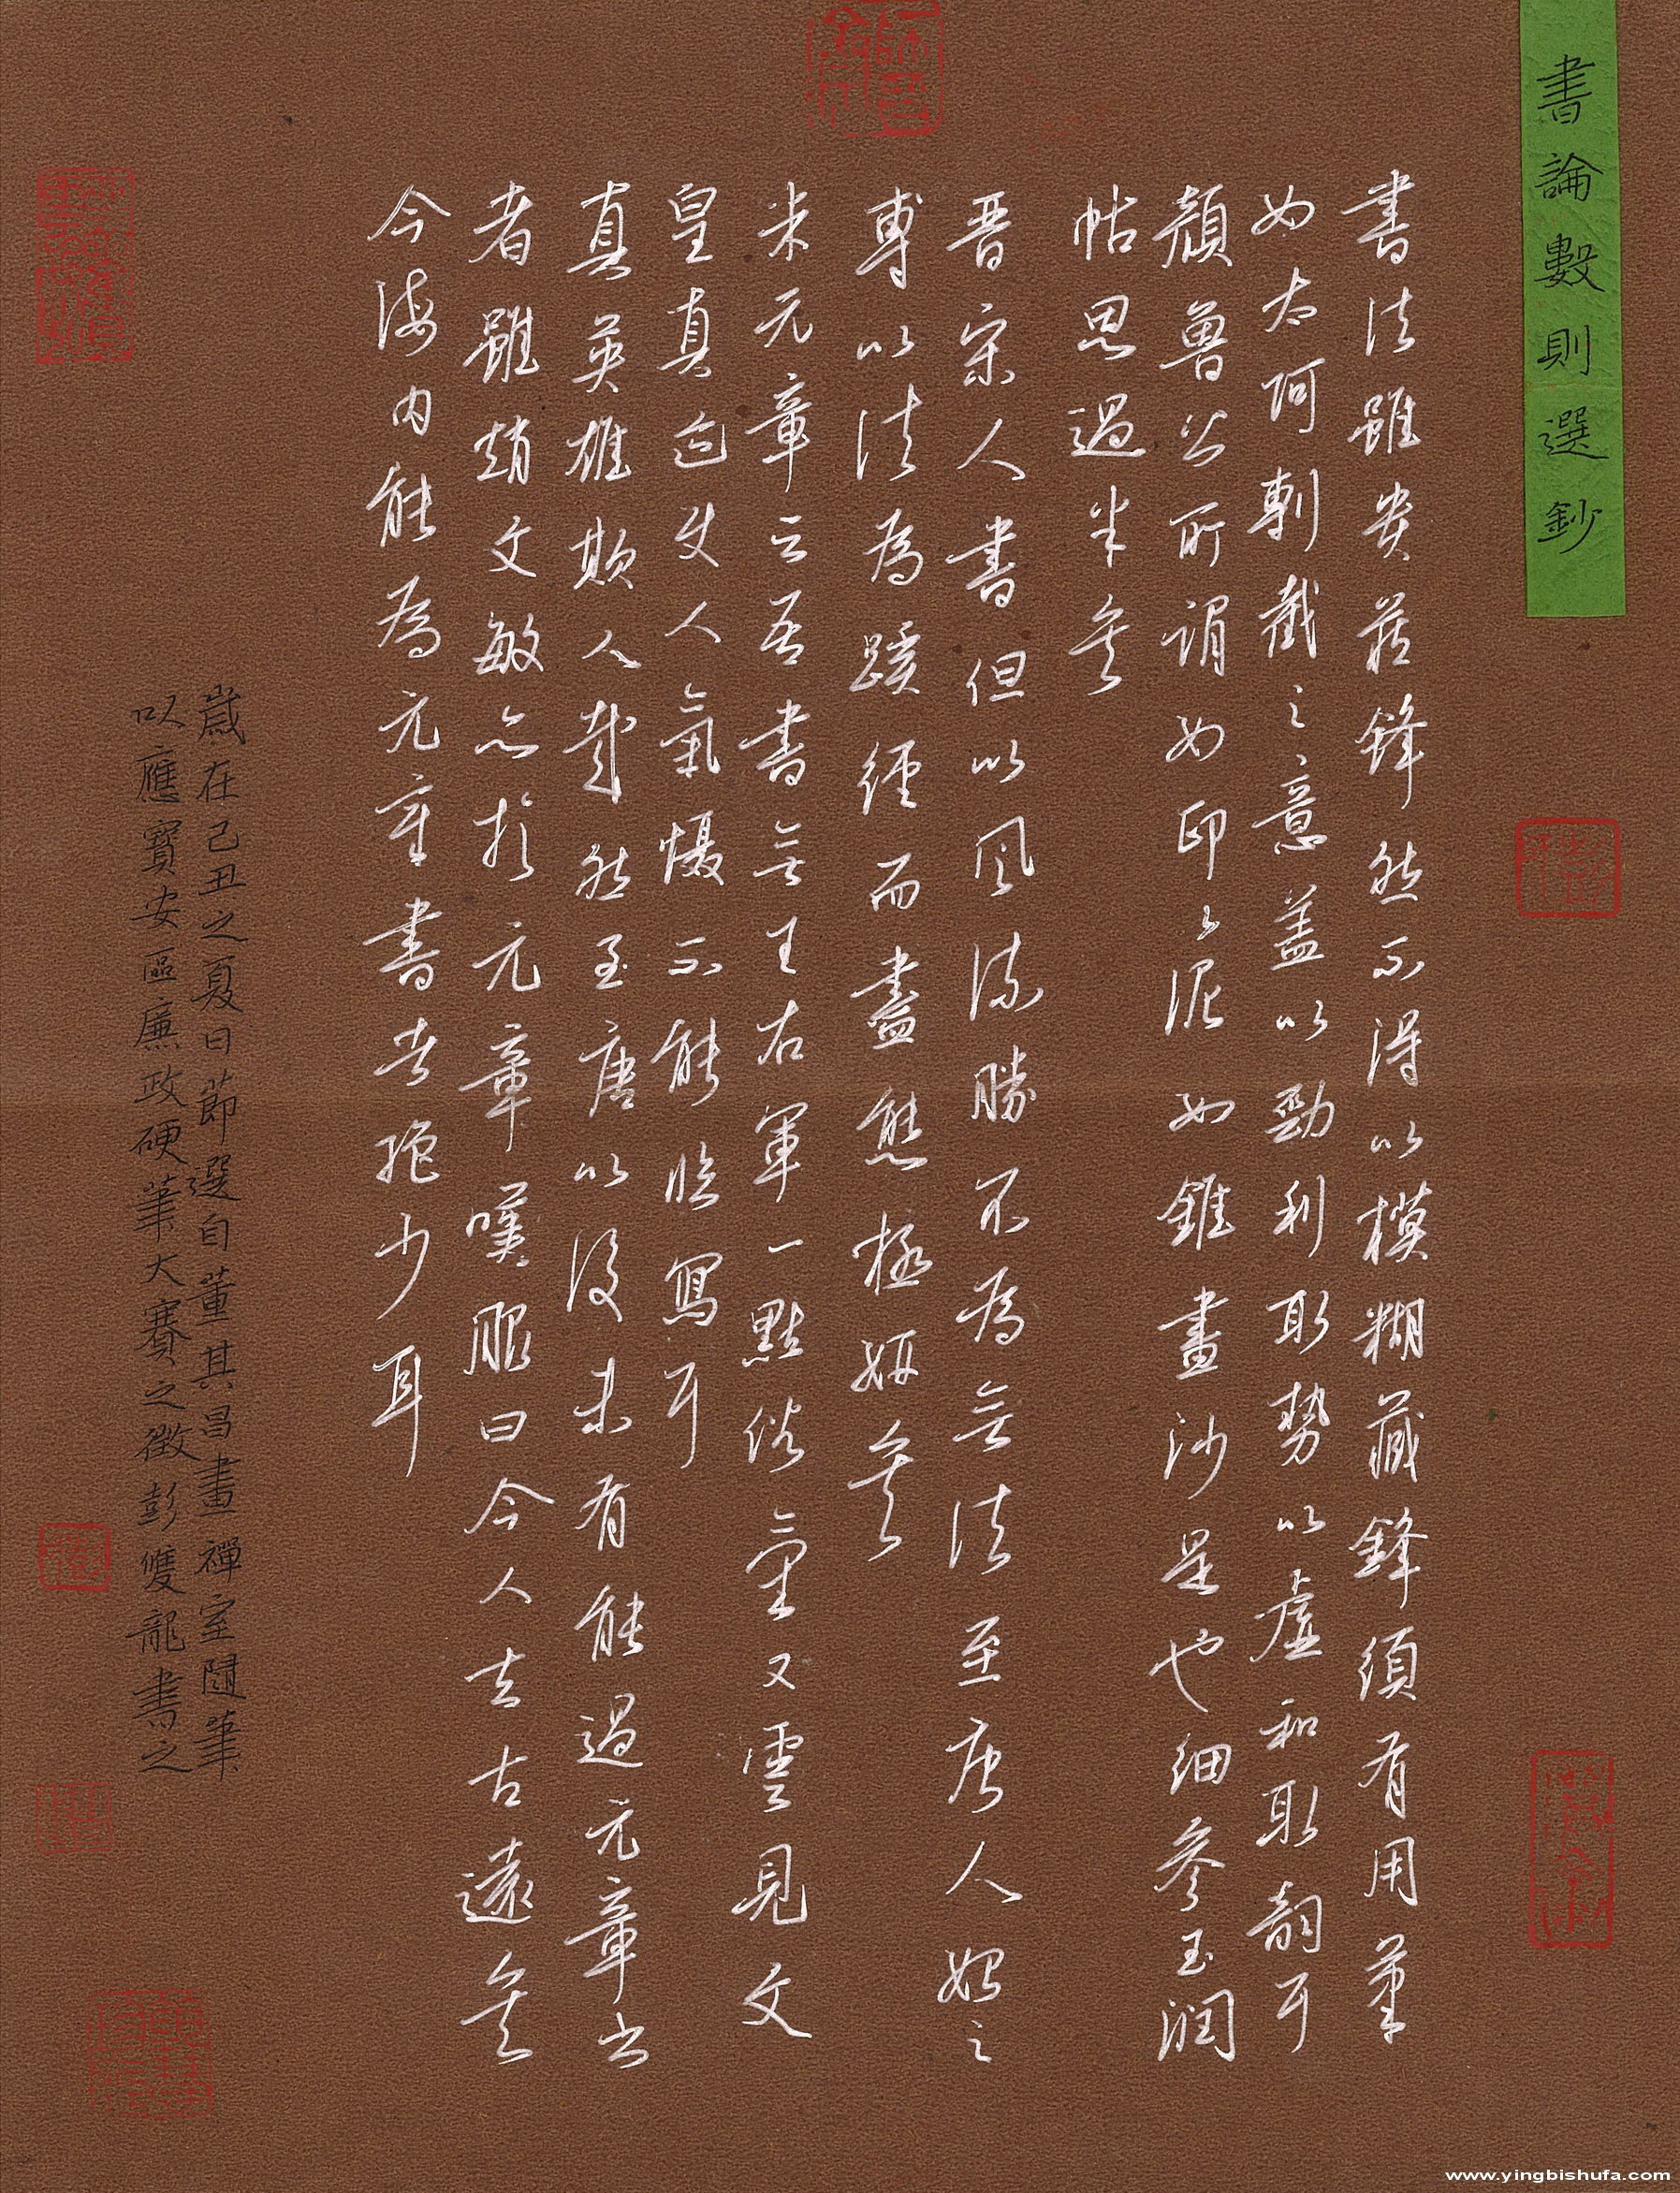 書論數則選鈔
書法雖貴藏鋒然不得以模糊藏鋒須有用筆
如太阿剸截之意盖以勁利取勢以虛和取韻耳
顏魯公所謂如印印泥如錐畫沙是也細參玉潤
帖思過半矣
晋宋人書但以風流勝不為無法至唐人始之
專以法為蹊徑而盡態極妍矣
米元章云吾書無王右軍一點俗氣又雲見文
皇真迹使人氣懾不能臨寫耳
真英雄欺人哉然至唐以後未有能過元章書
者雖趙文敏亦於元章嘆服曰今人去古遠矣
今海内能為元章書者絕少耳
歲在己丑之夏日節選自董其昌畫禪室隨筆
以應寶安區廉政硬筆大賽之徵彭雙龍書之
www.yingbishufa.com